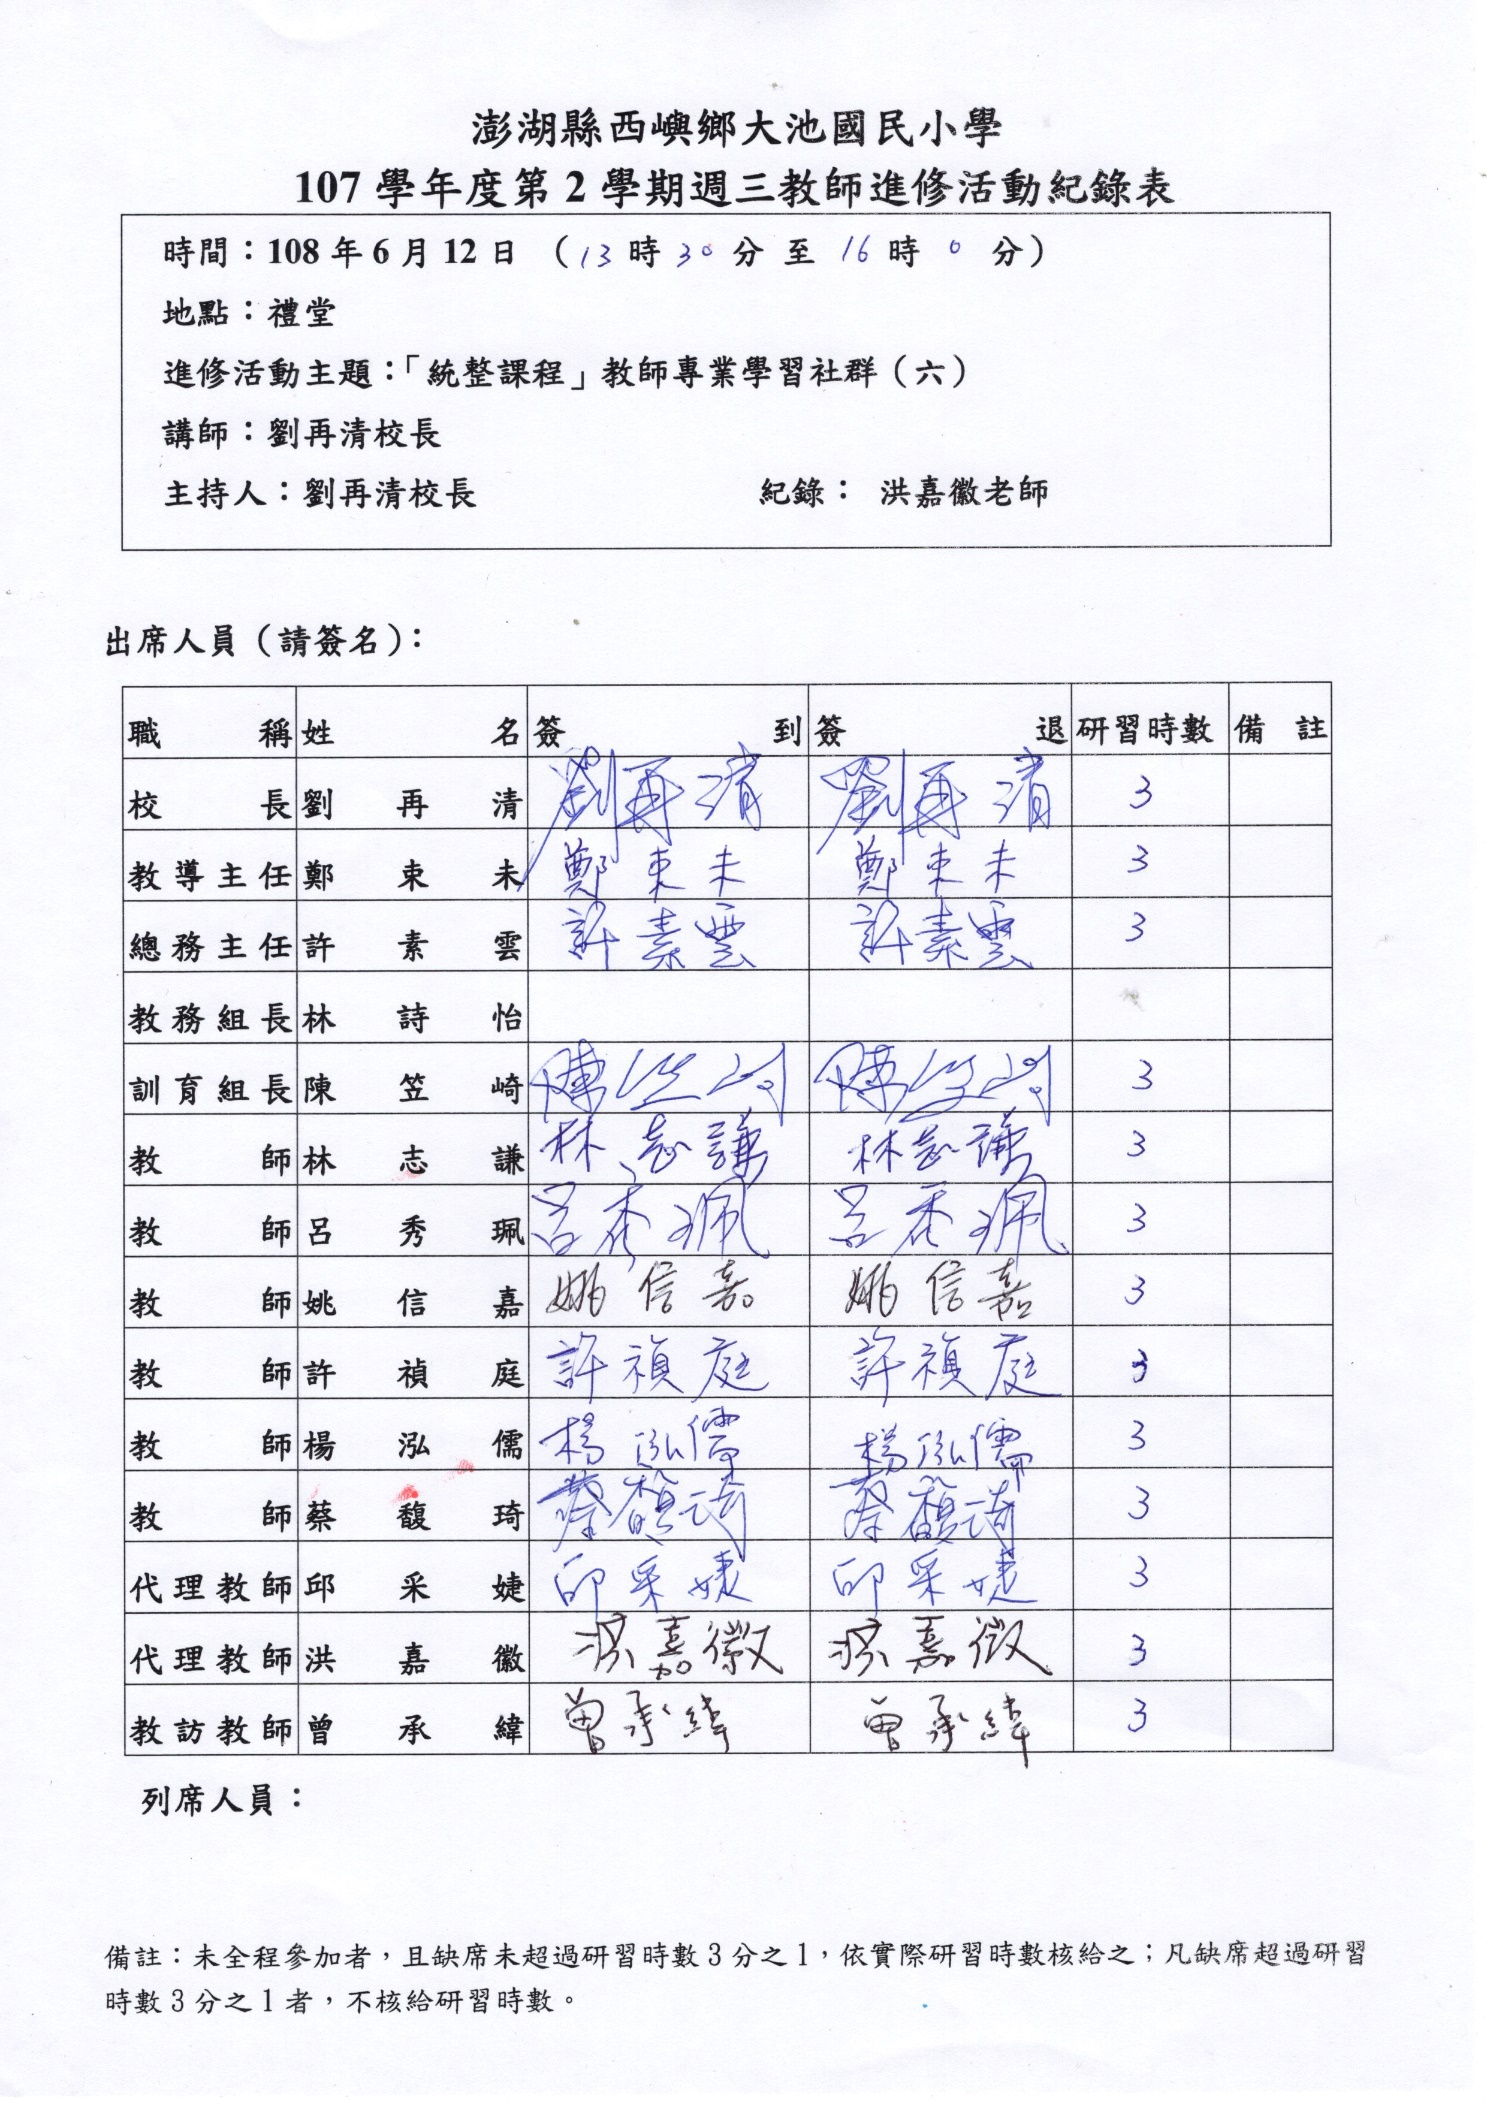 澎湖縣西嶼鄉大池國民小學
107 學年度第 2 學期週三教師進修活動紀錄表
時間：108 年 6 月 12 日 （13 時 30 分 至 16 時 0 分）
地點：禮堂
進修活動主題：「統整課程」教師專業學習社群（六）
講師：劉再清校長
主持人：劉再清校長 紀錄： 洪嘉徽老師
出席人員（請簽名）：
職稱 姓名 簽到 簽退 研習時數 備註
校長 劉再清 劉再清 劉再清 3
教導主任 鄭束未 鄭束未 鄭束未 3
總務主任 許素雲 許素雲 許素雲 3
教務組長 林詩怡
訓育組長 陳笠崎 陳笠崎 陳笠崎 3
教師 林志謙 林志謙 林志謙 3
教師 呂秀珮 呂秀珮 呂秀珮 3
教師 姚信嘉 姚信嘉 姚信嘉 3
教師 許禎庭 許禎庭 許禎庭 3
教師 楊泓儒 楊泓儒 楊泓儒 3
教師 蔡馥琦 蔡馥琦 蔡馥琦 3
代理教師 邱采婕 邱采婕 邱采婕 3
代理教師 洪嘉徽 洪嘉徽 洪嘉徽 3
教訪教師 曾承緯 曾承緯 曾承緯 3
列席人員：
備註：未全程參加者，且缺席未超過研習時數 3 分之 1，依實際研習時數核給之；凡缺席超過研習
時數 3 分之 1 者，不核給研習時數。